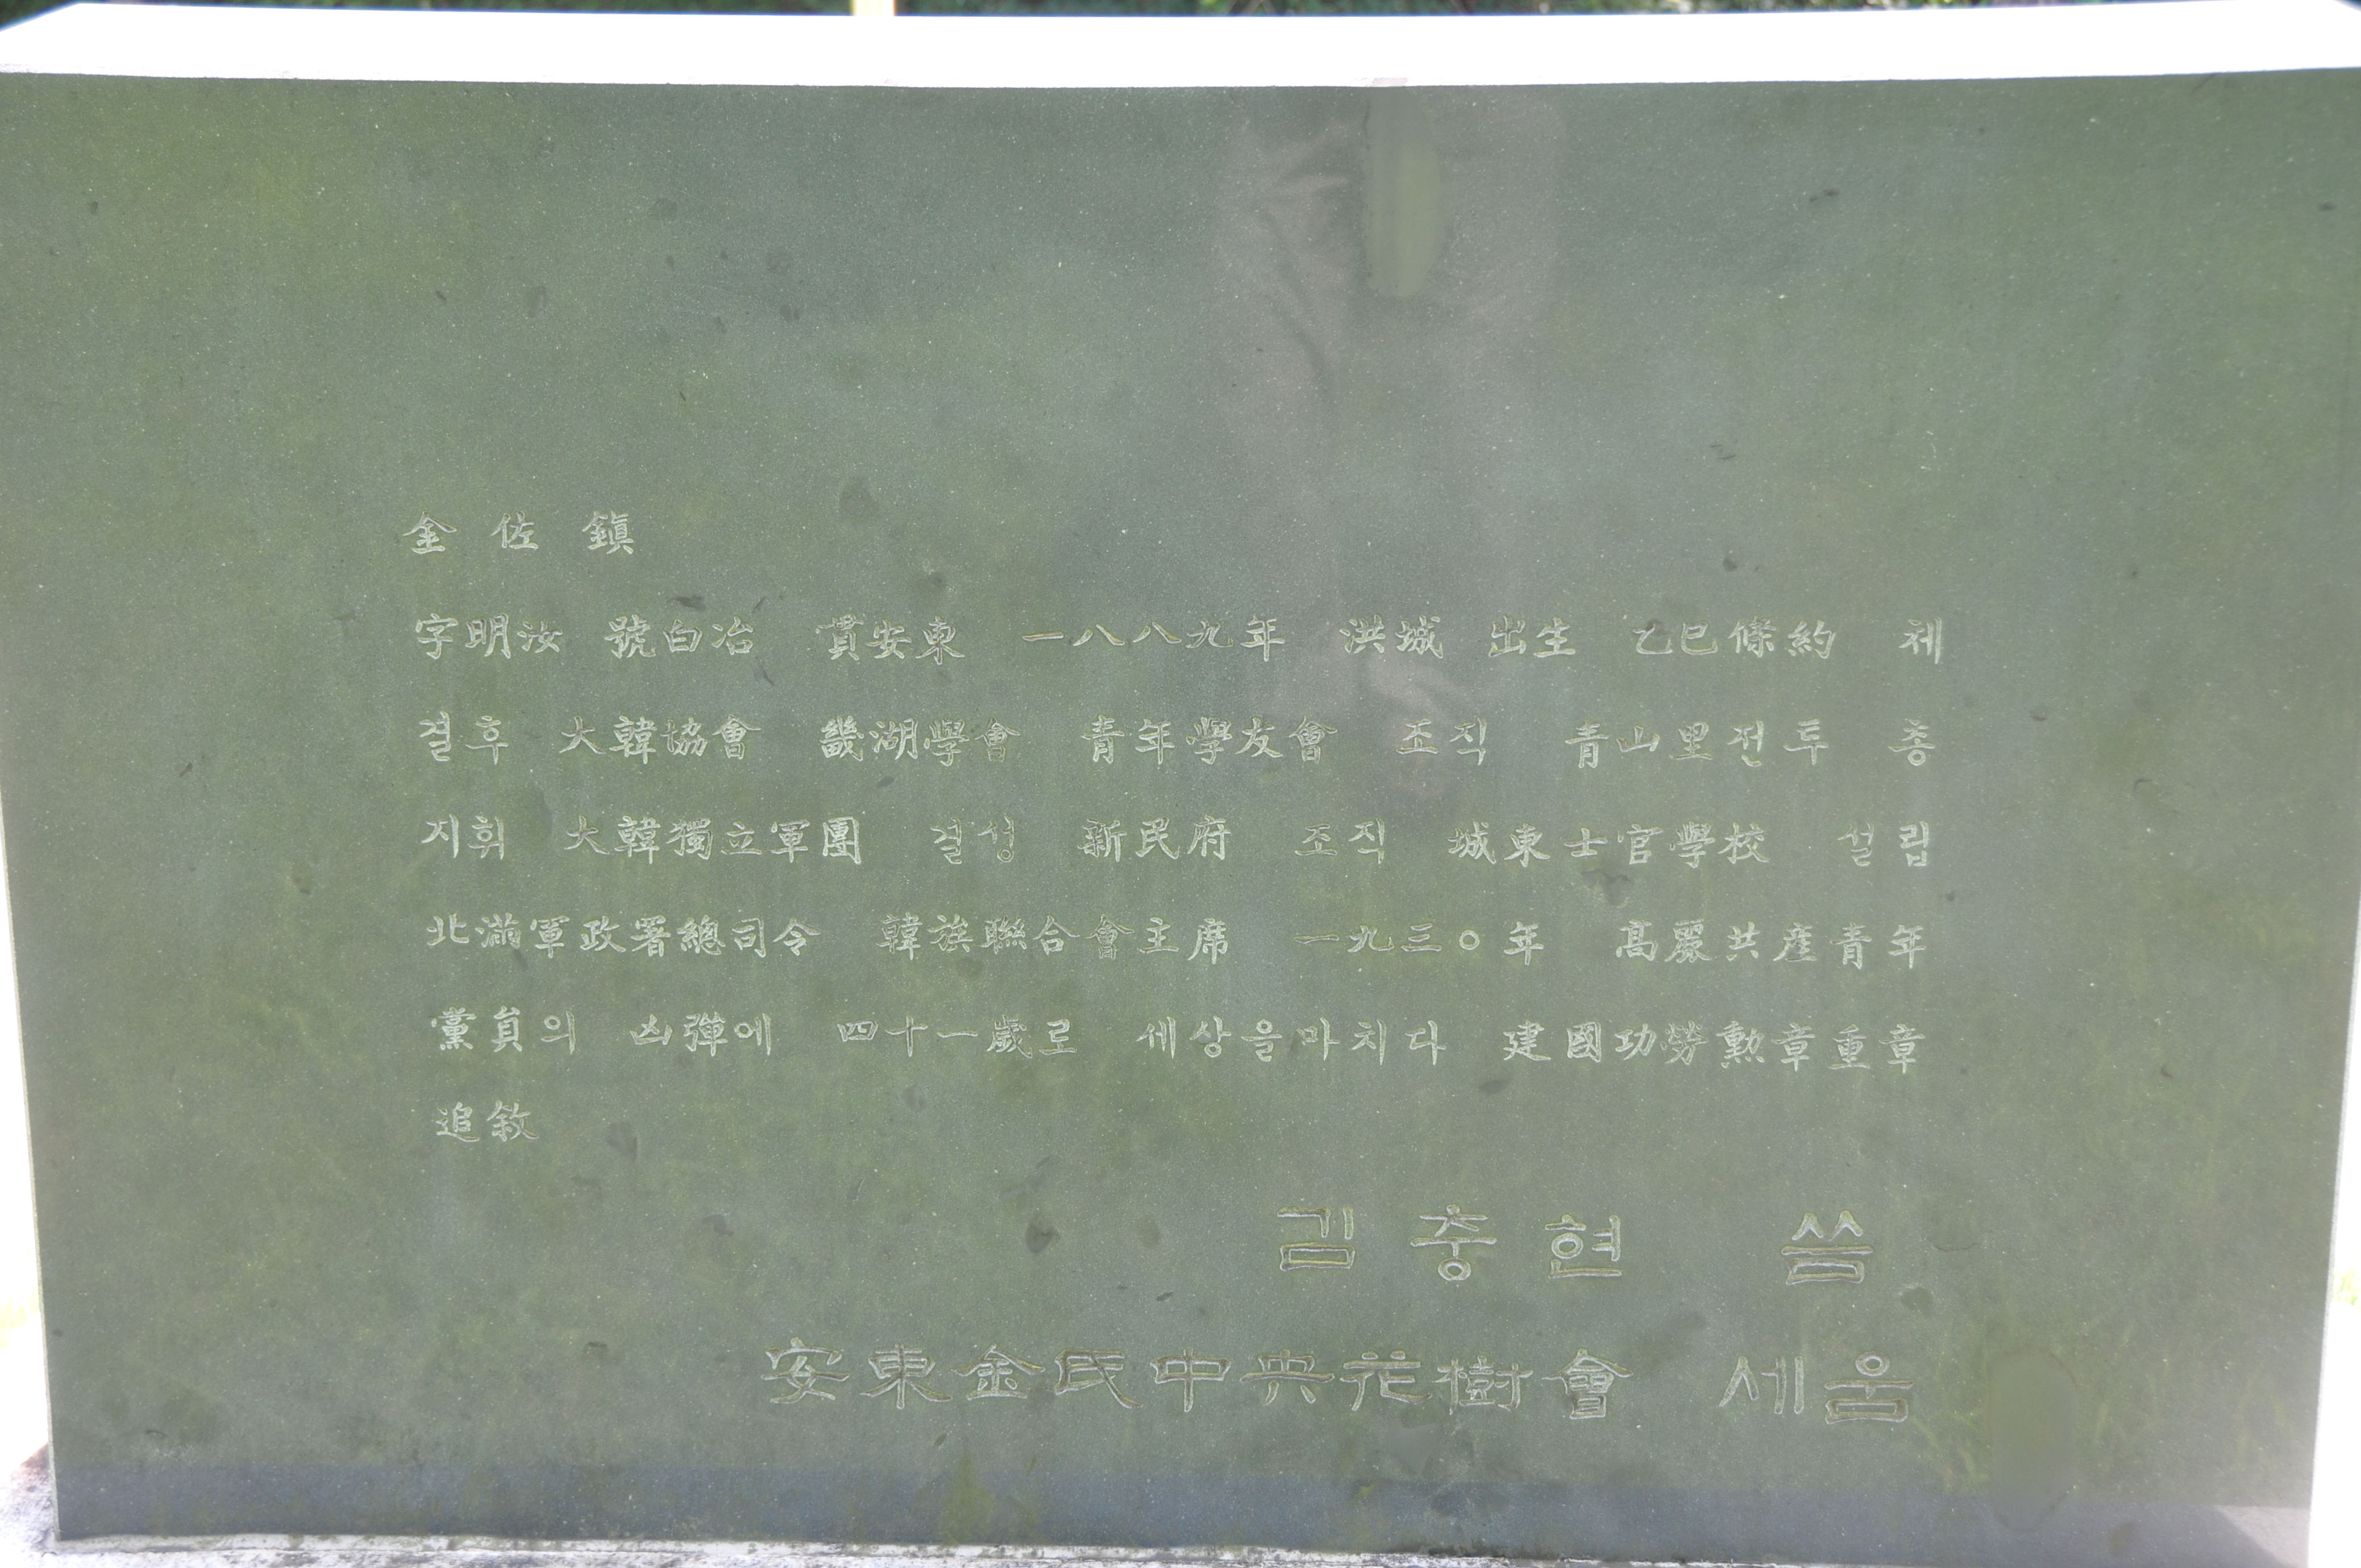 金佐鎭
字明汝 號白冶 貫安東 一八八九年 洪城 出生 乙巳條約 체
결후 大韓協會 畿湖學會 靑年學友會 조직 靑山里전투 총
지휘 大韓獨立軍團 결성 新民府 조직 城東士官學校 설립
北滿軍政署總司令 韓族聯合會主席 一九三○年 高麗共産靑年
黨員의 凶彈에 四十一歲로 세상을마치다 建國功勞勳章重章
追敘
김충현 씀
安東金氏中央花樹會 세움